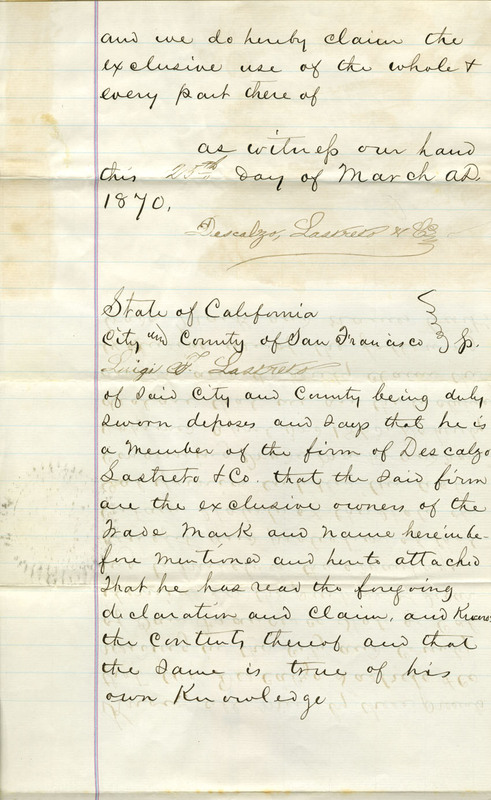 and we do hereby claim the
exclusive use of the whole &
every part there of
as witness our hand
this 25th day of March AD.
1870.
Descalzo, Lastreto & Co
State of California
City and County of San Francisco } ss.
Luigi F. Lastreto
of said City and County being duly
sworn deposes and says that he is
a Member of the firm of Descalzo
Lastreto & Co. that the said firm
are the exclusive owners of the
Trade Mark and name hereinbe-
fore mentioned and hereto attached
that he has read the foregoing
declaration and claim, and knows
the contents thereof and that
the same is true of his
own Knowledge